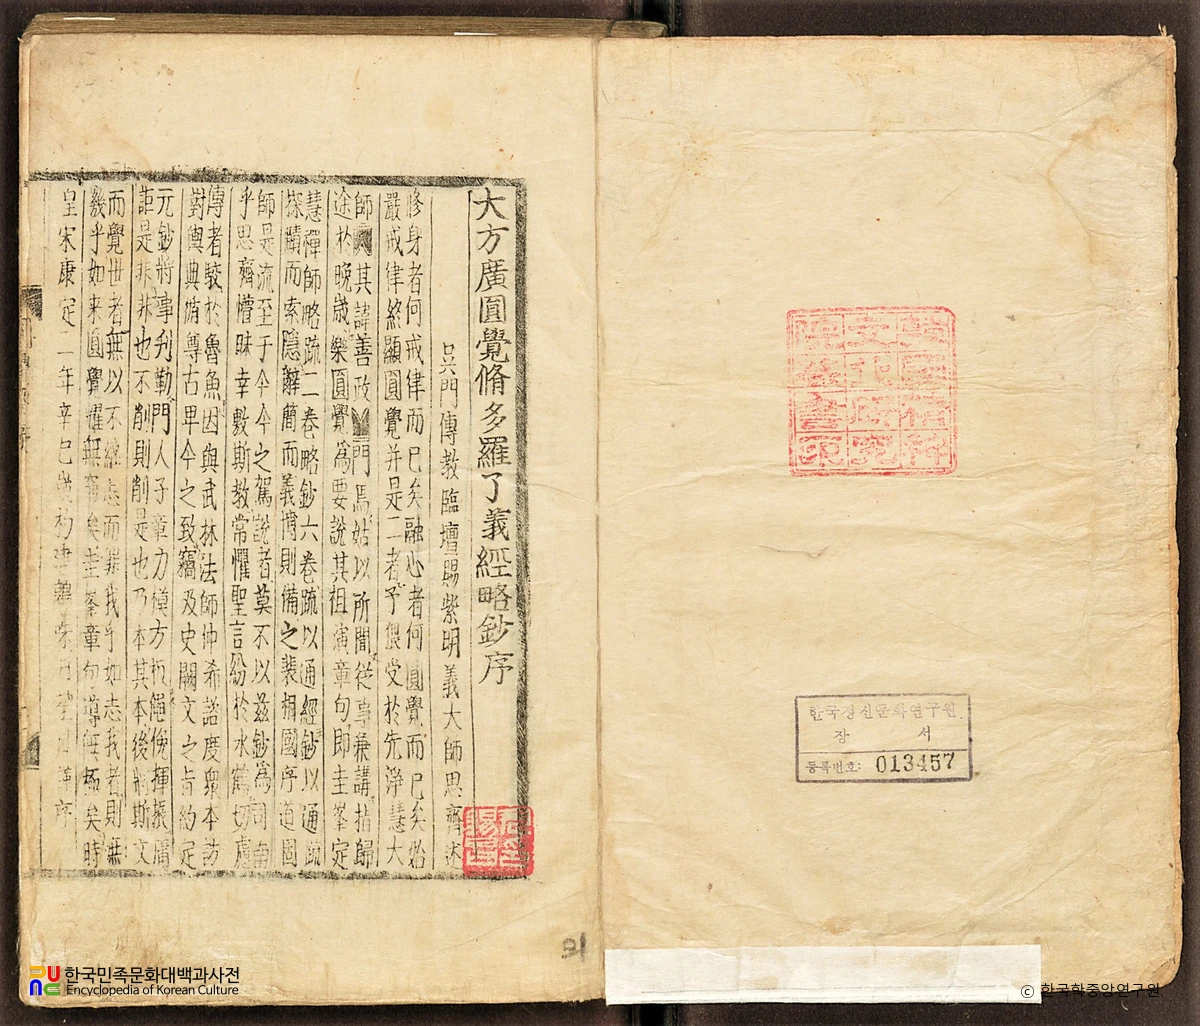 大方廣圓覺脩多羅了義經略鈔序
吳門傳教臨壇賜紫明義大師思齊述
修身者何戒律而已矣融心者何圓覺而已矣始
嚴戒律終顯圓覺并是二者予偎受於先淨慧大
師 其諱善政 門焉姑以所聞從事兼講指歸
途於晚歲樂圓覺為要說其祖演章句即圭峯定
慧禪師略疏二卷略鈔六卷疏以通經鈔以通疏
探賾而索隱辭簡而義博則備之裴相國序道圓
師是流至于今今之駕說者莫不以茲鈔為司南
乎思齊懵昧幸敷斯教常懼聖言紛於水鶴切慮
傳者駮於魯魚因與武林法師仲希諮度眾本訪
對輿典循尊古畀今之致竊及史闕文之旨約定
元鈔將事刋勒門人子章力模方 繩俛揮 
詎是非非也不削則削是也乃本其本後將斯文
而覺世者無以不經志而罪我乎如志我者則無
幾乎如来圓覺耀無窮矣圭峯章句導無極矣時
皇宋康定 一年辛巳 序
91
한국정신문화연구원
장 서
등록번호: 013457
한국민족문화대백과사전
Encyclopedia of Korean Culture
ⓒ 한국학중앙연구원